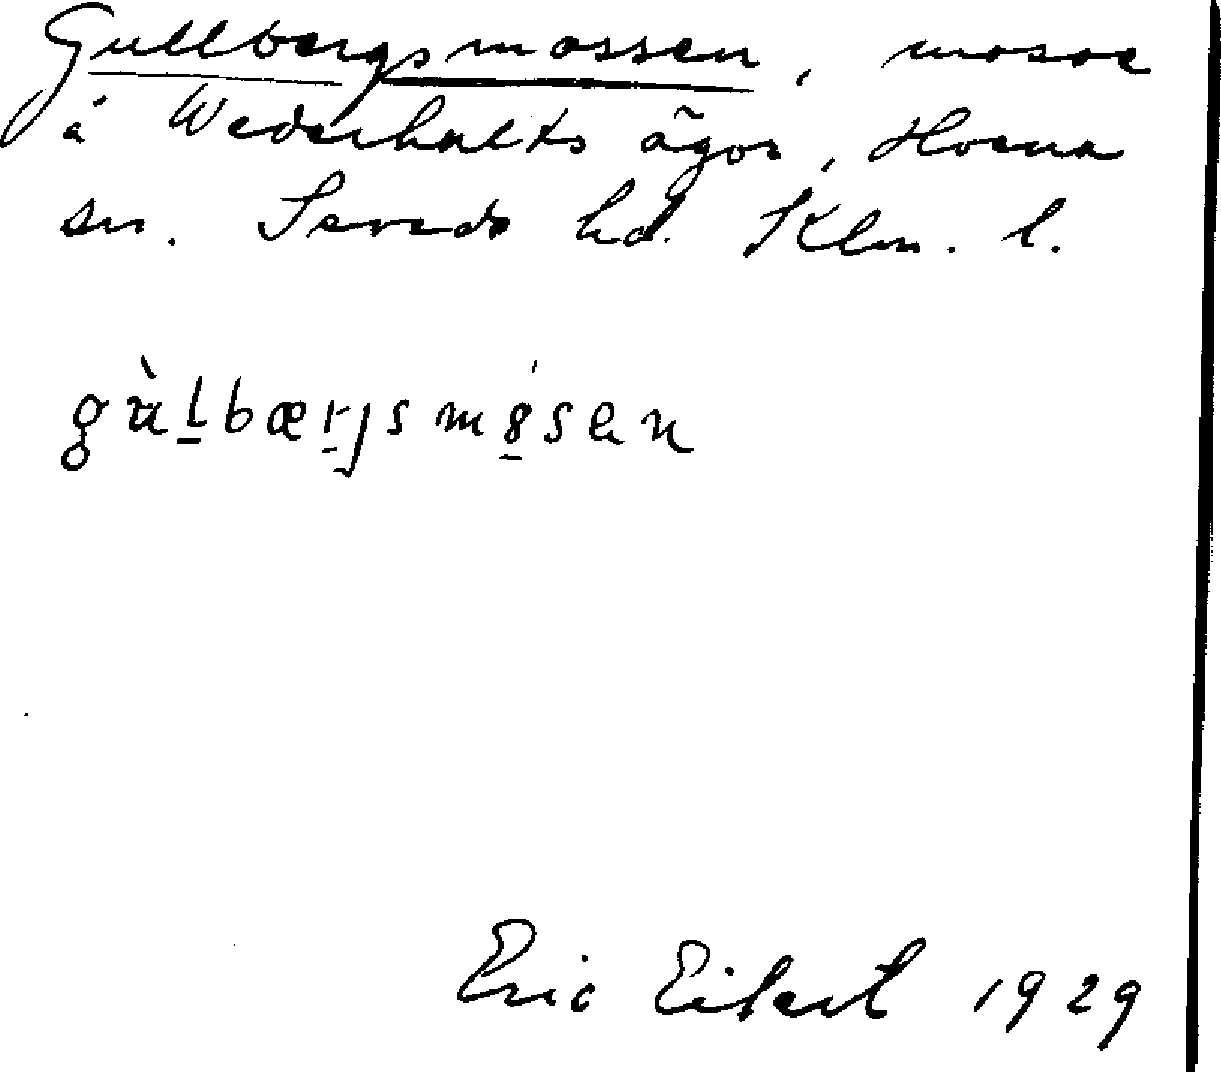 Gullbergsmossen, mosse
å Wederhults ägor, Horna
sn. Sevede hd. Klm. l.
gùḻbærjsmǿ̱sen
Eric Eckert 1929